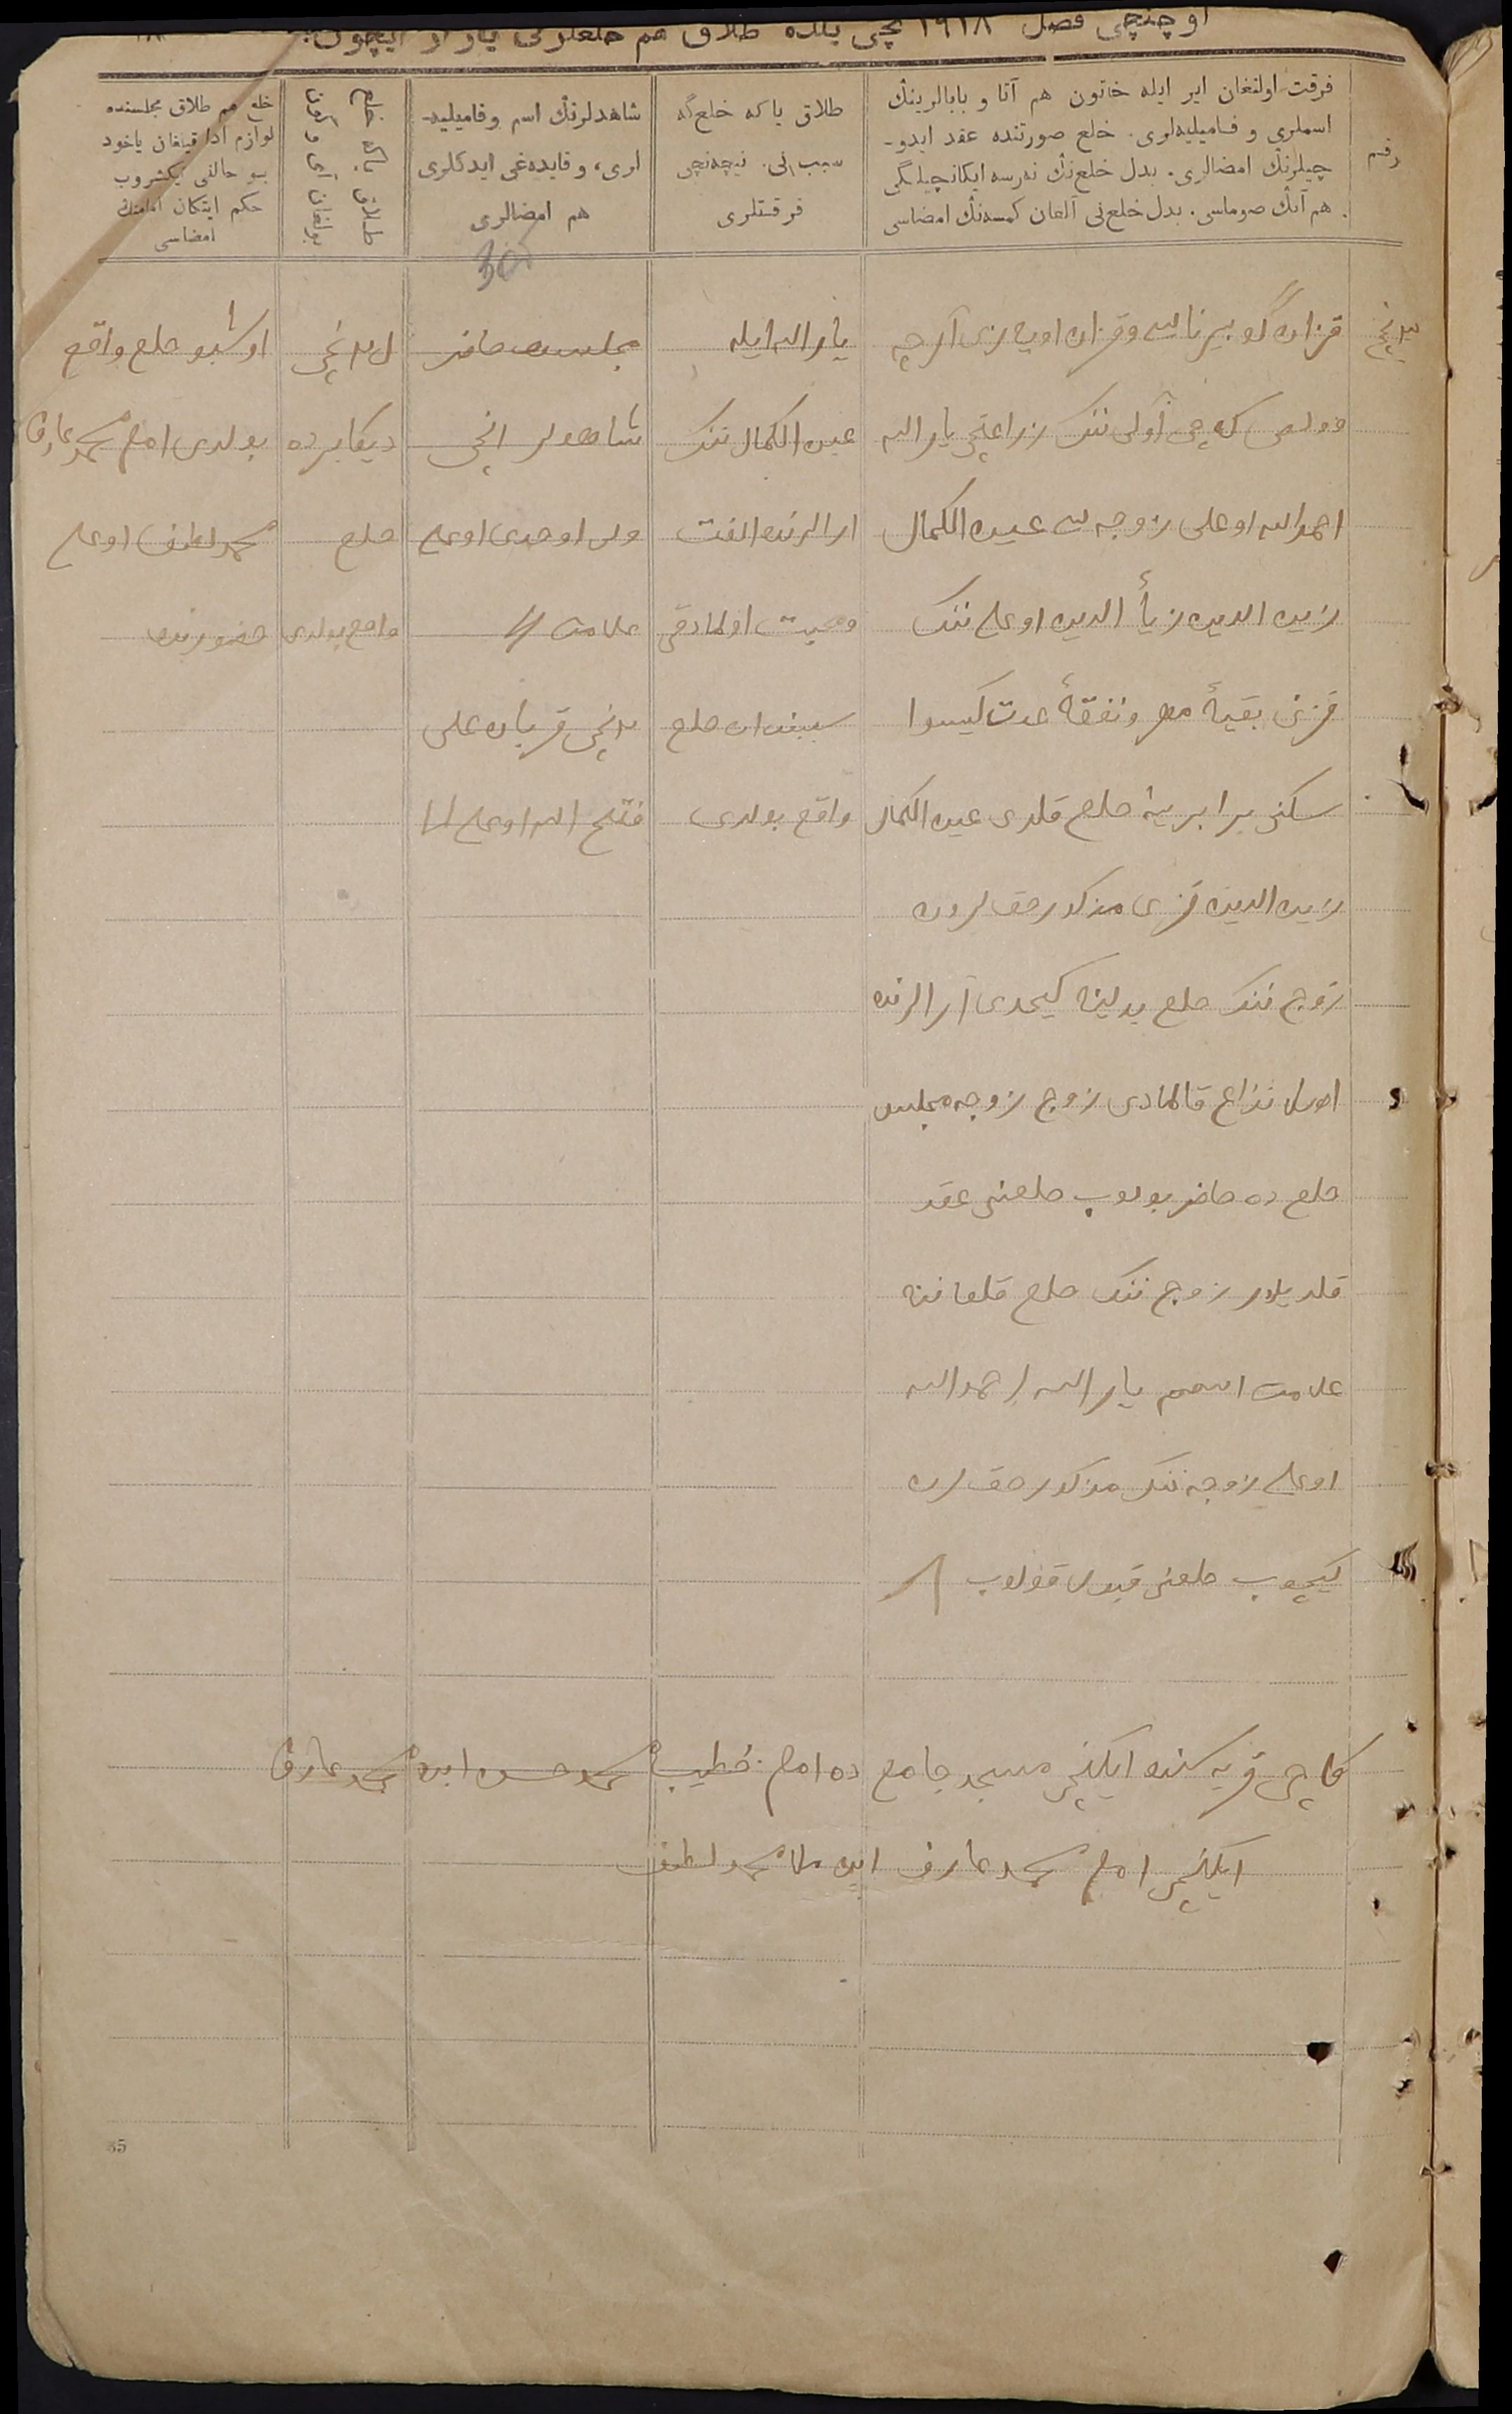 اوچنچی فصل ١٩١٨ نچی یلده طلاق هم خلعلرنی یازار ایچون.
رقم
فرقت اولنغان ایر ایله خاتون هم آتا و بابالرینڭ
اسملری و فامیلیه‌لری. خلع صورتنده عقد ایدو-
چیلرنڭ امضالری. بدل خلع‌نڭ نه‌رسه ایکانچیلگی
هم آنڭ صوماسی. بدل خلع‌نی آلغان کمسه‌نڭ امضاسی
طلاق یا که خلع‌گه
سبب نی. نیچه‌نچی
فرقتلری
شاهدلرنڭ اسم و فامیلیه-
لری، و قایده‌غی ایدکلری
هم امضالری
30
طلاق یا که خلع
بولغان آی و کون
خلع هم طلاق مجلسنده
لوازم ادا قیلغان یاخود
بو حالنی تیکشروب
حکم ایتکان امامنڭ
امضاسی
قزان گوبیرناسی و قزان اویازی آرچه
که چی آولی ننک زراعتچی یار الله
احمد الله اوغلی زوجه سی عین الکمال
زین الدین ضیأ الدین اوغلی ننک
قزی بقیۀ مهر و نفقۀ عدت کیسوا
سکنی برابرینه خلع قلدی عین الکمال
زین الدین قزی مذکور حق لردن
زوج ننک خلع بدلینه کیچدی آرالرنده
اصلا نزاع قالمادی زوج زوجه مجلس
خلع ده حاضر بولوب خلعنی عقد
قلدیلار زوج ننک خلع قلغاننه
علامت اسمم یار الله احمد الله
اوغلی زوجه ننک مذکور حق لردن
کیچوب خلعنی قبول قولوب
یار الله ایله
عین الکمال ننک
ارالرنده الفت
و محبت اولمادقی
سببندن خلع
واقع بولدی
مجلسده حاضر
شاهدلر انچی
ولی اوحدی اوغلی
علامت
نچی قربان علی
فتح الله اوغلی
نچی
دیکابرده
خلع
واقع بولدی
اوشبو خلع واقع
بولدی امام محمد عارف
محمد لطیف اوغلی
حضورنده
کاچی قریه سنده ایکنچی مسجد جامع ده امام خطیب محمد حسن ابن محمد عارف
ایکنچی امام محمد عارف ابن ملا محمد لطیف
35